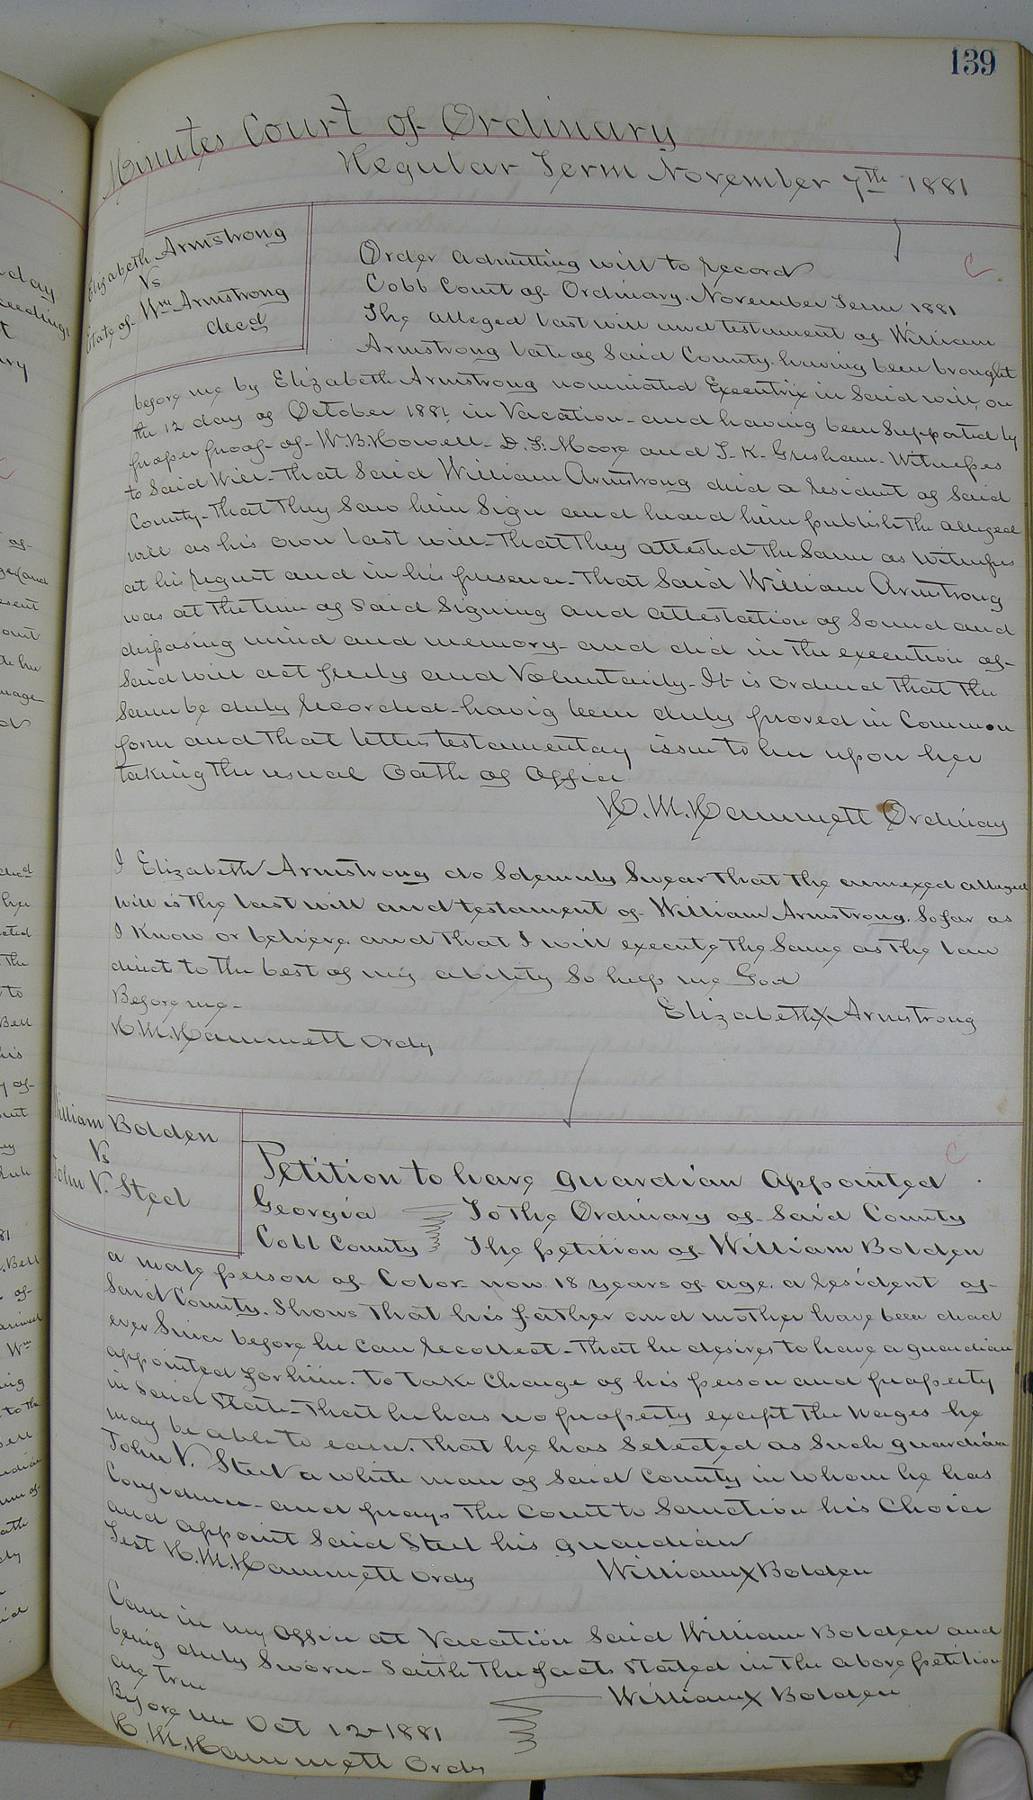 139
Minutes Court of Ordinary
Regular Term November 7th 1881
Elizabeth Armstrong
Vs
Estate of Wm Armstrong
decd
Order admitting will to record
Cobb Court of Ordinary November Term 1881
The alleged last will and testament of William
Armstrong late of Said County having been brought
before me by Elizabeth Armstrong nominated Executrix in Said will, on
the 12 day of October 1881, in Vacation and having been Supported by
proper proof of W.B. Howell - D.F. Moore and J.K. Grisham - Witnesses
to Said Will - That Said William Armstrong died a resident of Said
County - That They Saw him Sign and heard him publish the alleged
will as his own last will - That they attested the Same as Witnesses
at his request and in his presence - That Said William Armstrong
was at the time of Said Signing and attestation of Sound and
disposing mind and memory - and did in the execution of
Said will act freely and Voluntarily - It is ordered that the
Same be duly recorded - having been duly proved in Common
form and that letters testamentary issue to her upon her
taking the usual Oath of Office
H.M. Hammett Ordinary
I Elizabeth Armstrong do Solemnly Swear that the annexed alleged
will is the last will and testament of William Armstrong. So far as
I Know or believe. and that I will execute the Same as the law
direct to the best of my ability So help me God
Before me - Elizabeth X Armstrong
H.M. Hammett Ordy
C
C
William Bolden
Vs
John V. Steel
Petition to have guardian appointed
Georgia To the Ordinary of Said County
Cobb County The petition of William Bolden
a male person of Color now 18 years of age. a resident of
Said County. Shows that his father and mother have been dead
ever Since before he can recollect - That he desires to have a guardian
appointed for him. to take Charge of his person and property
in Said State - That he has no property except the wages he
may be able to earn. That he has Selected as Such guardian
John V. Steel a white man of Said County in whom he has
Confidence - and prays the Court to Sanction his Choice
and appoint Said Steel his guardian
Test H.M. Hammett Ordy William X Bolden
Came in my office at Vacation Said William Bolden and
being duly Sworn - Saith The facts Stated in the above petition
are true
William X Bolden
Before me Oct 12 - 1881
H.M. Hammett Ordy